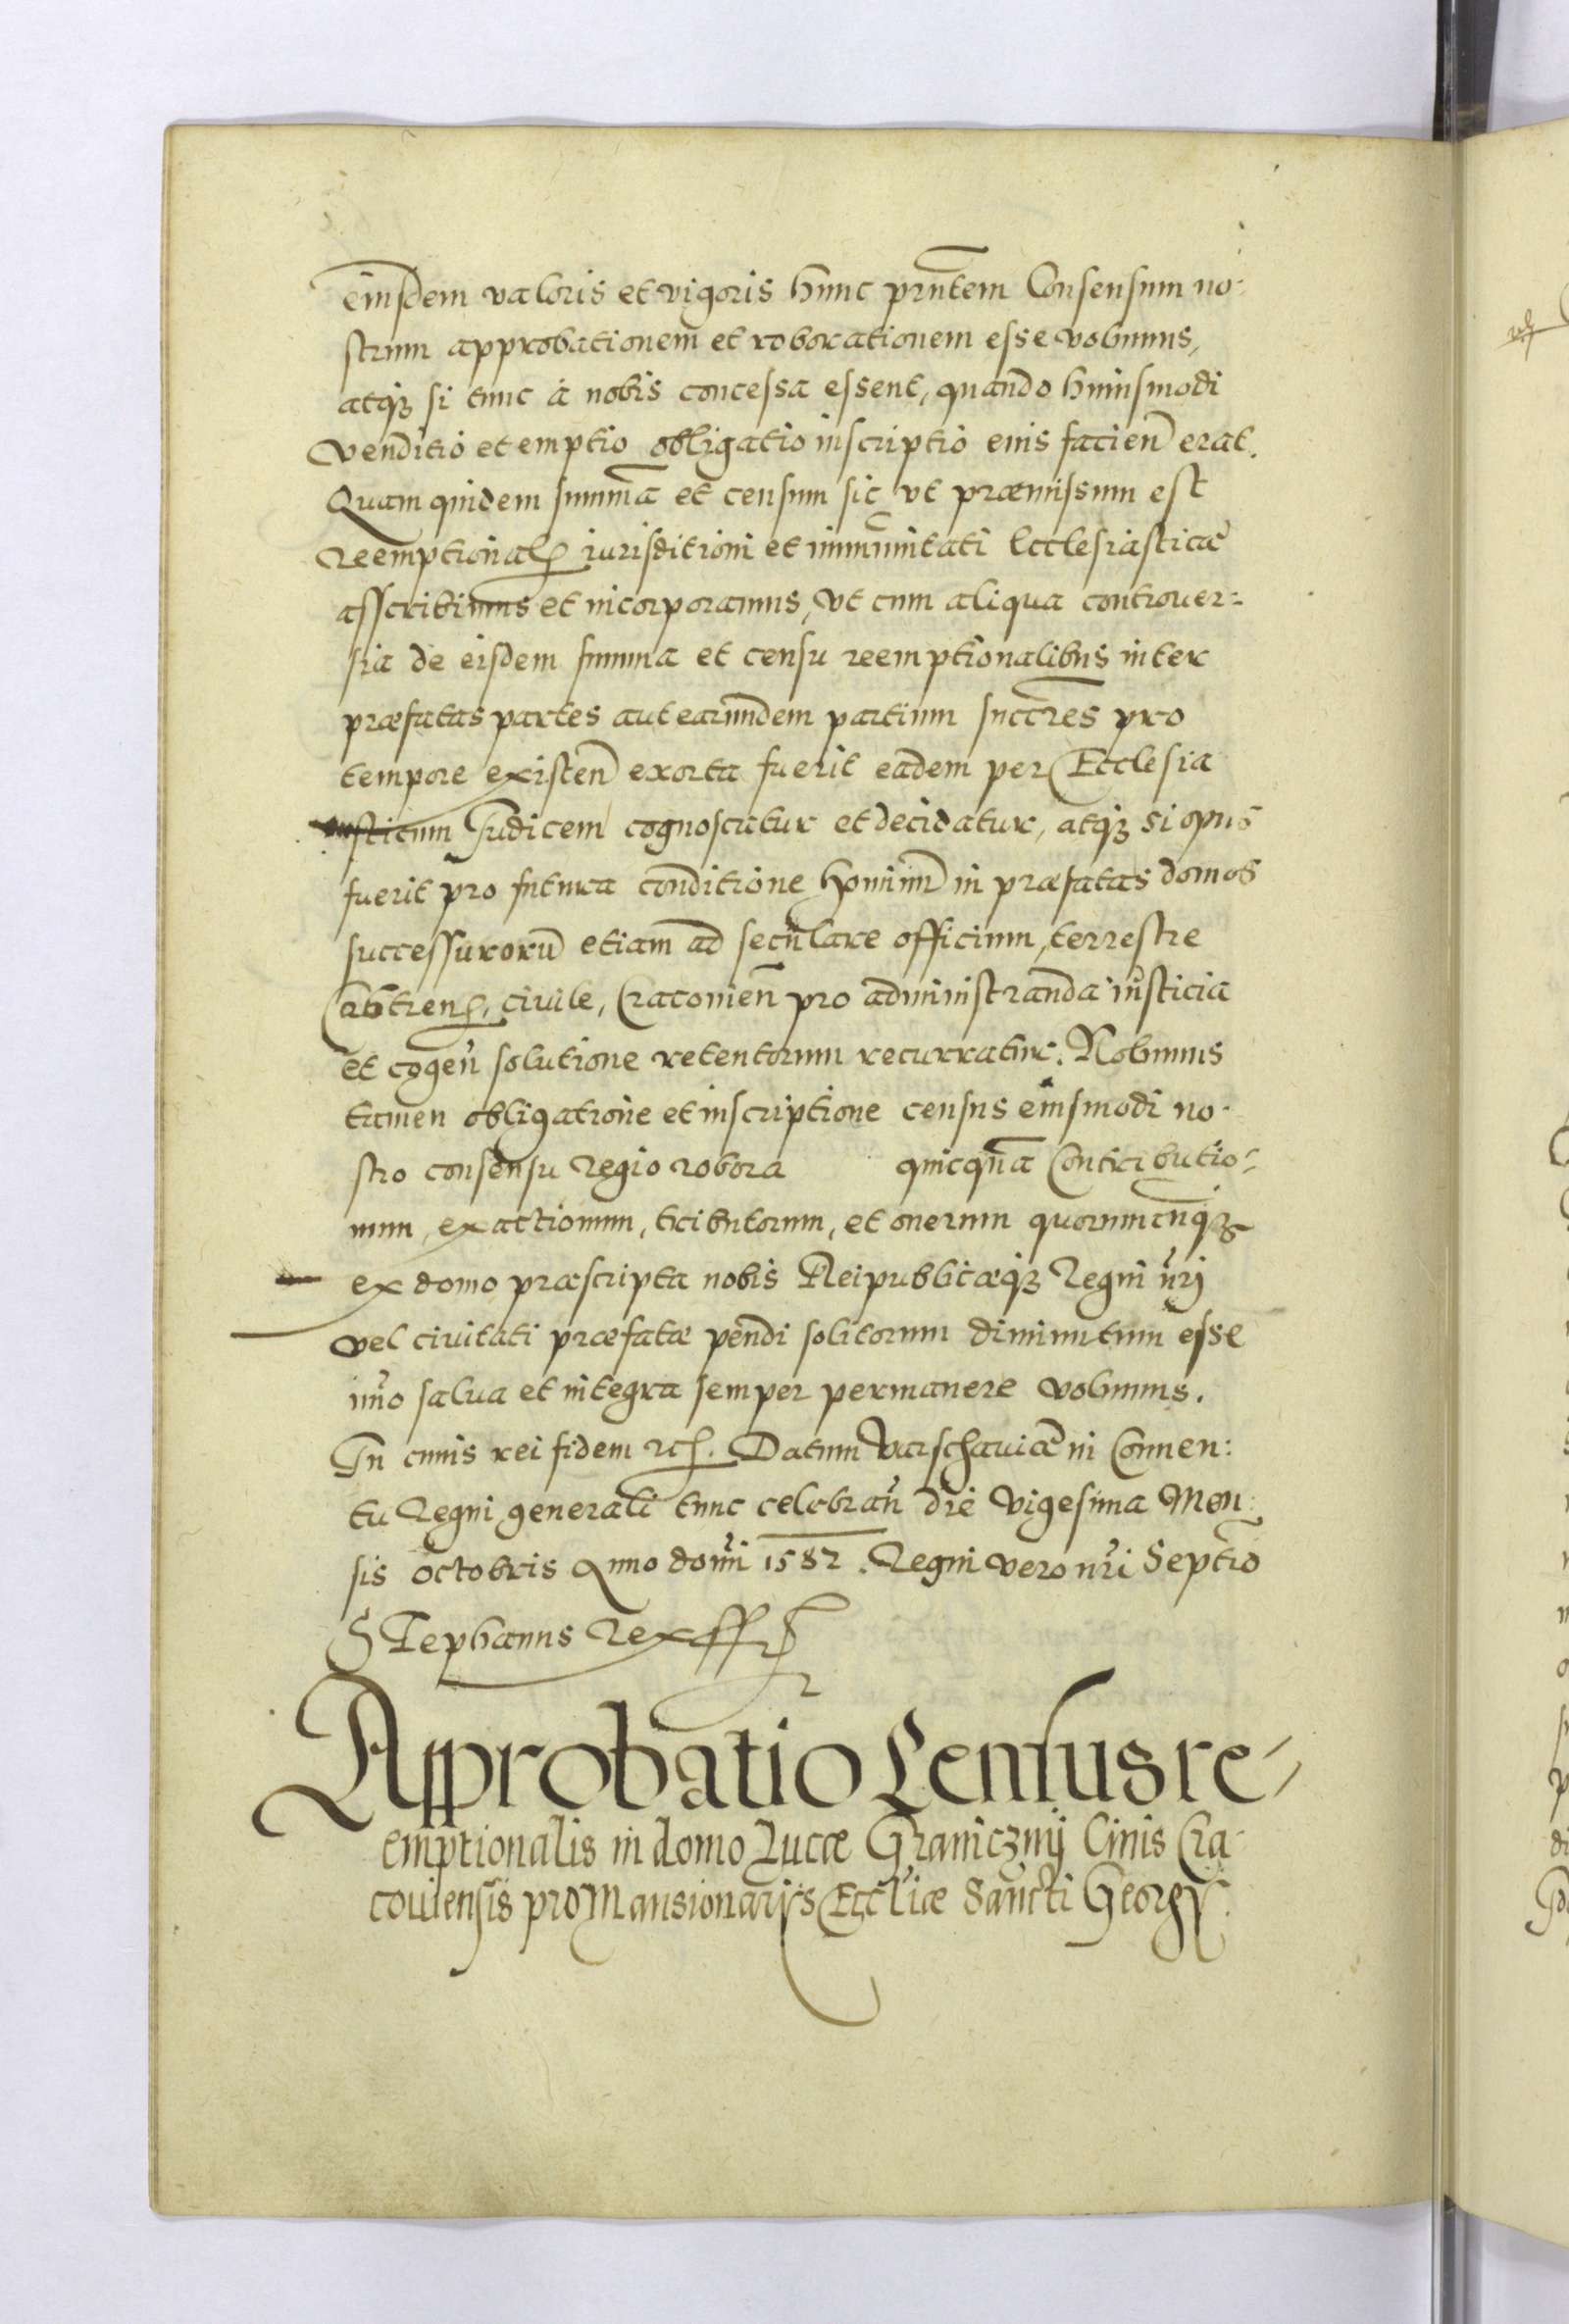 eiusdem valoris et vigoris hunc prntem Consensum no-
strum approbationem et roborationem esse volumus,
atq3 si tunc à nobis concessa essent, quando huiusmodi
venditio et emptio obligatio inscriptio eius facien erat.
Quam quidem summa et censum sic vt præmissum est
reemptional iurisditioni et immunitati Ecclesiasticæ
asscribimus et incorporamus, vt cum aliqua controuer=
sia de eisdem summa et censu reemptionalibus inter
præfatas partes aut earundem partium succres pro
tempore existen exorta fuerit eadem per Ecclesia
sticum Iudicem cognoscatur et decidatur, atq3 si opus
fuerit pro futura conditione hominu in præfatas domos
successuroru etiam ad seculare officium, terrestre
castren, ciuile, Cracouien pro administranda iusticia
et cogen solutione retentorum recurratur. Nolumus
tamen obligatione et inscriptione census eiusmodi no-
stro consensu regio robora quicqua Contributio=
num, exactionum, tributorum, et onerum quorumcunq3
ex domo præscripta nobis Reipublicæq3 Regni nrj
vel ciuitati præfatæ pendi solitorum diminutum esse
imo salua et integra semper permanere volumus.
In cuius rei fidem rc. Datum Varschauiæ in Conuen:
tu Regni generali tunc celebran die vigesima Men:
sis octobris Anno domi 1582. Regni vero nri Septio
Stephanus Rex sst
Approbatio Census re-
emptionalis in domo Lucæ Granicznÿ Ciuis Cra-
couiensis pro Mansionarijs Eccliæ Sancti Georgÿ.